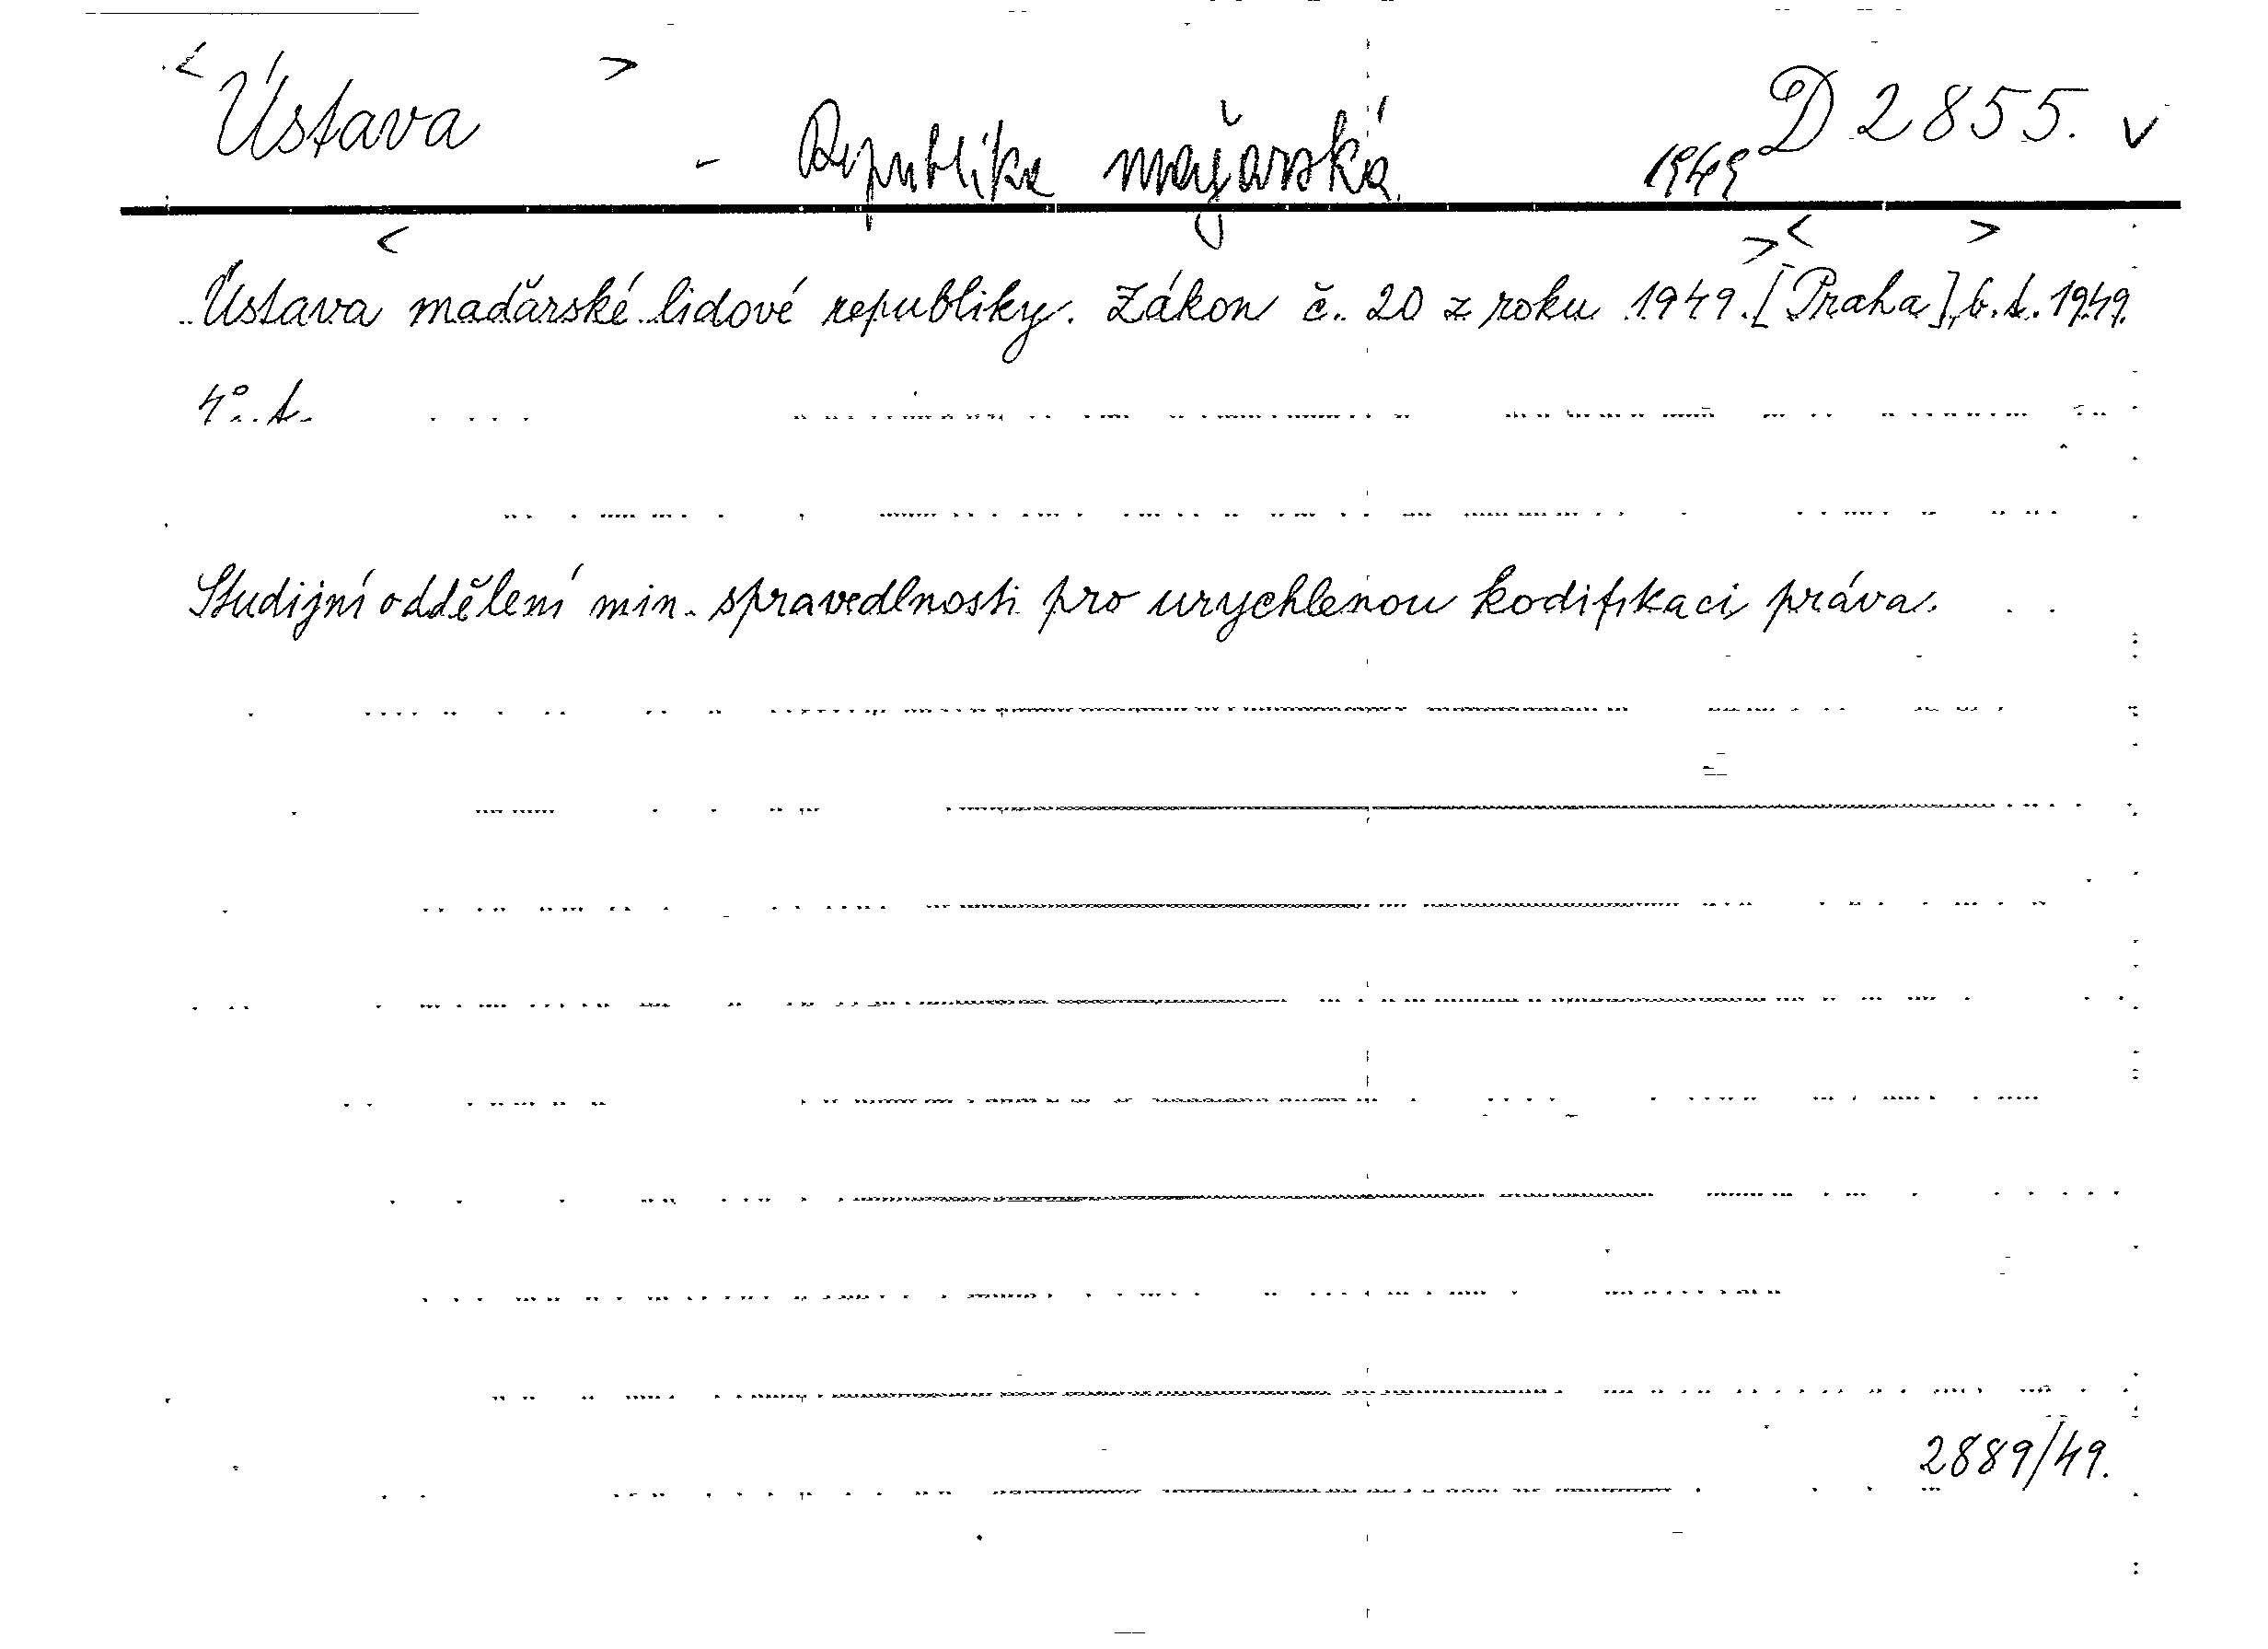 < Ústava > - Republika maďarská 1949 D 2855. v
Ústava < maďarské lidové republiky. Zákon č. 20 z roku 1949. > < [Praha], > b. t. 1949.
4°. t.
Studijní oddělení min. spravedlnosti pro urychlenou kodifikaci práva.
2889/49.